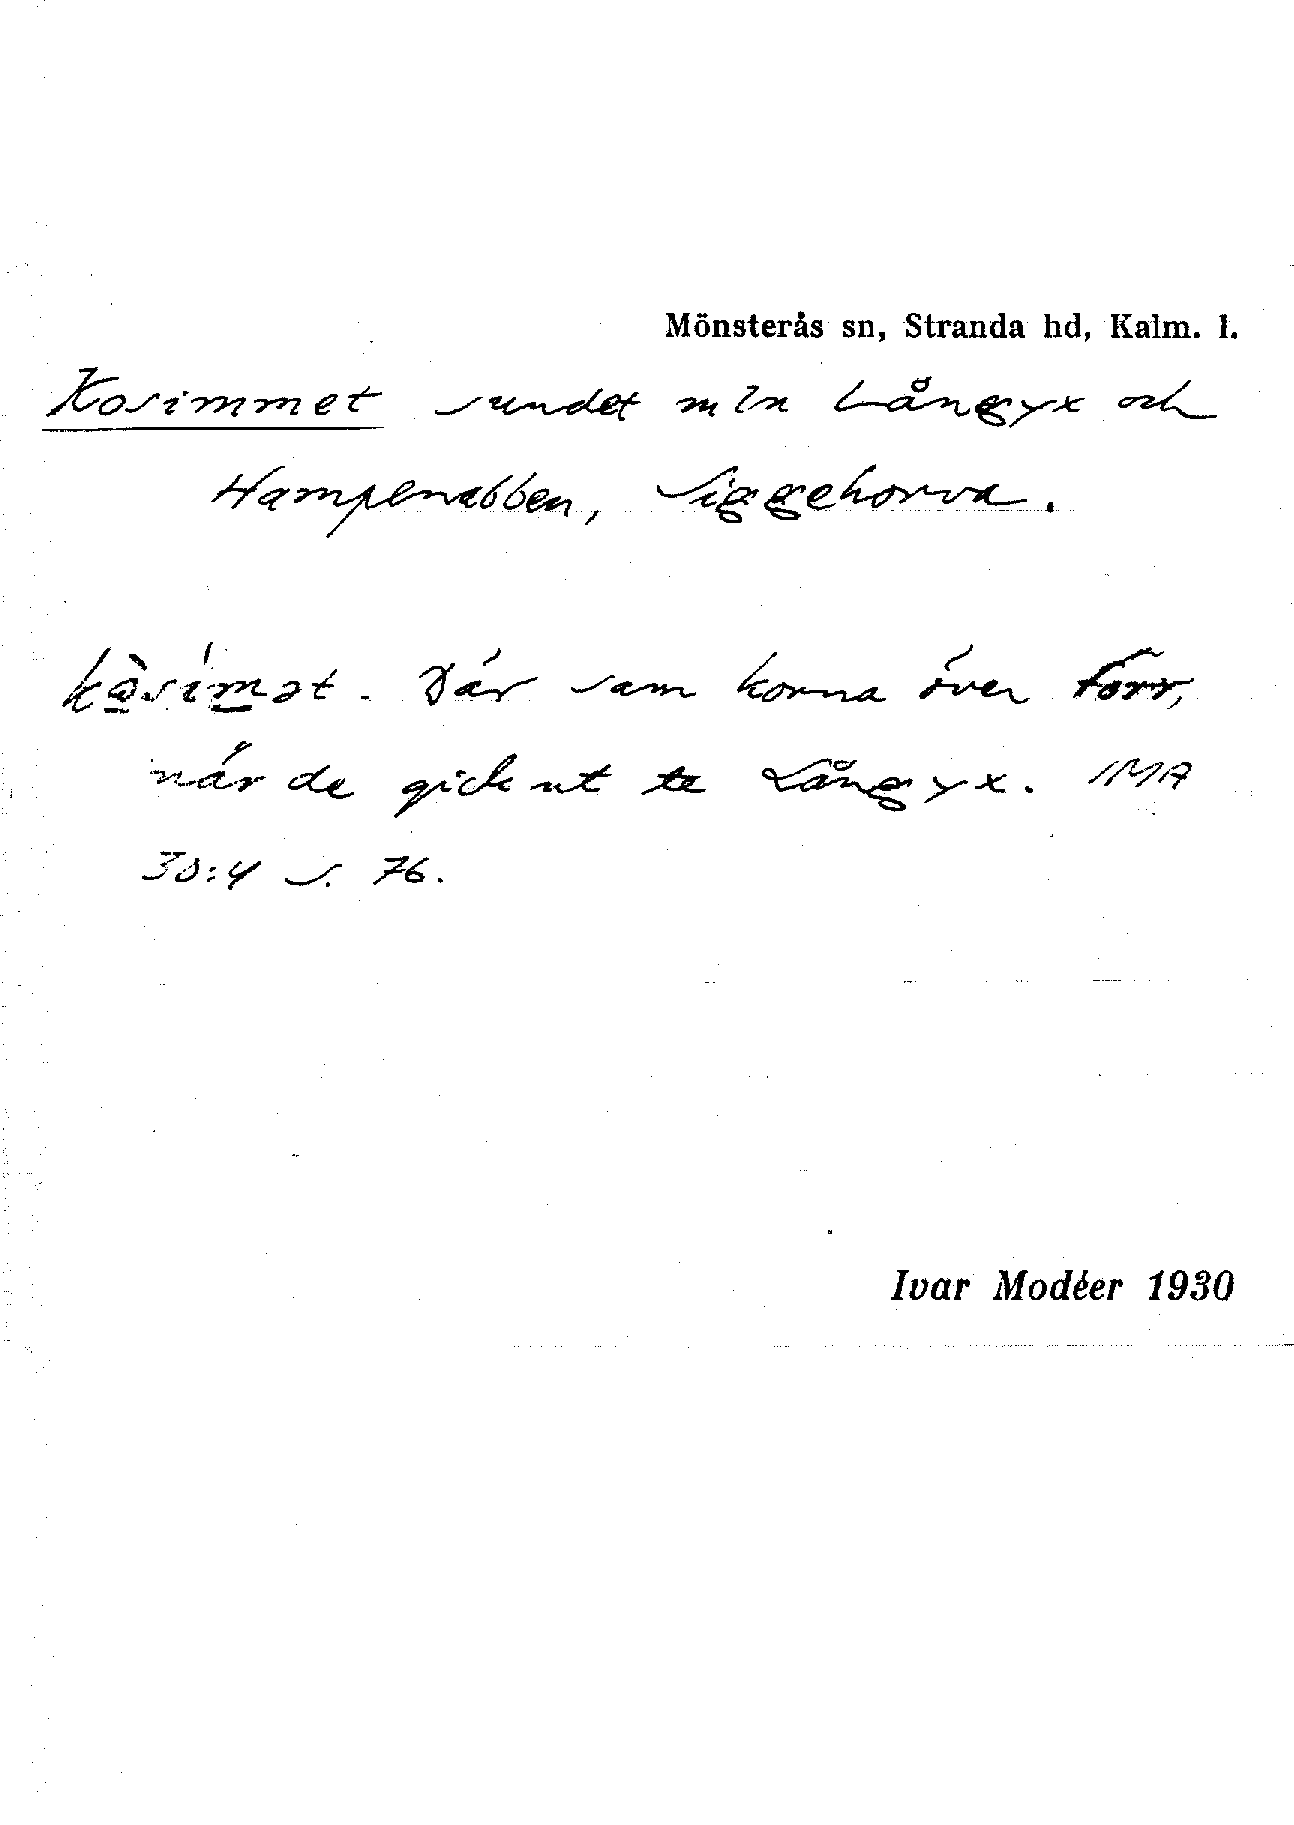 Mönsterås sn, Stranda hd, Kalm. l.
Kosimmet sundet mln Långyx och
Hampenabben, Siggehorva.
Där sam korna över förr,
när de gick ut te Långyx. IMA
30:4 s. 76.
Ivar Modéer 1930